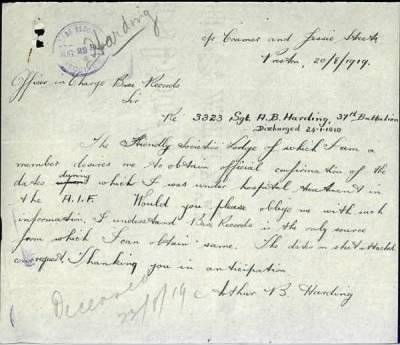 Harding
c/o Cramer and Jessie Streets
Preston, 20/8/1919.
Officer in Charge Base Records
Sir
Re 3323 Sgt. A.B. Harding, 37th Battalion
Discharged
The Friendly Societies Lodge of which I am a
member desires me to obtain official confirmation of the
dates during which I was under hospital treatment in
the A.I.F. Would you please oblige me with such
information, I understand Base Records is the only source
from which I can obtain same. The dates on sheet attached
request, Thanking you in anticipation
Arthur B. Harding